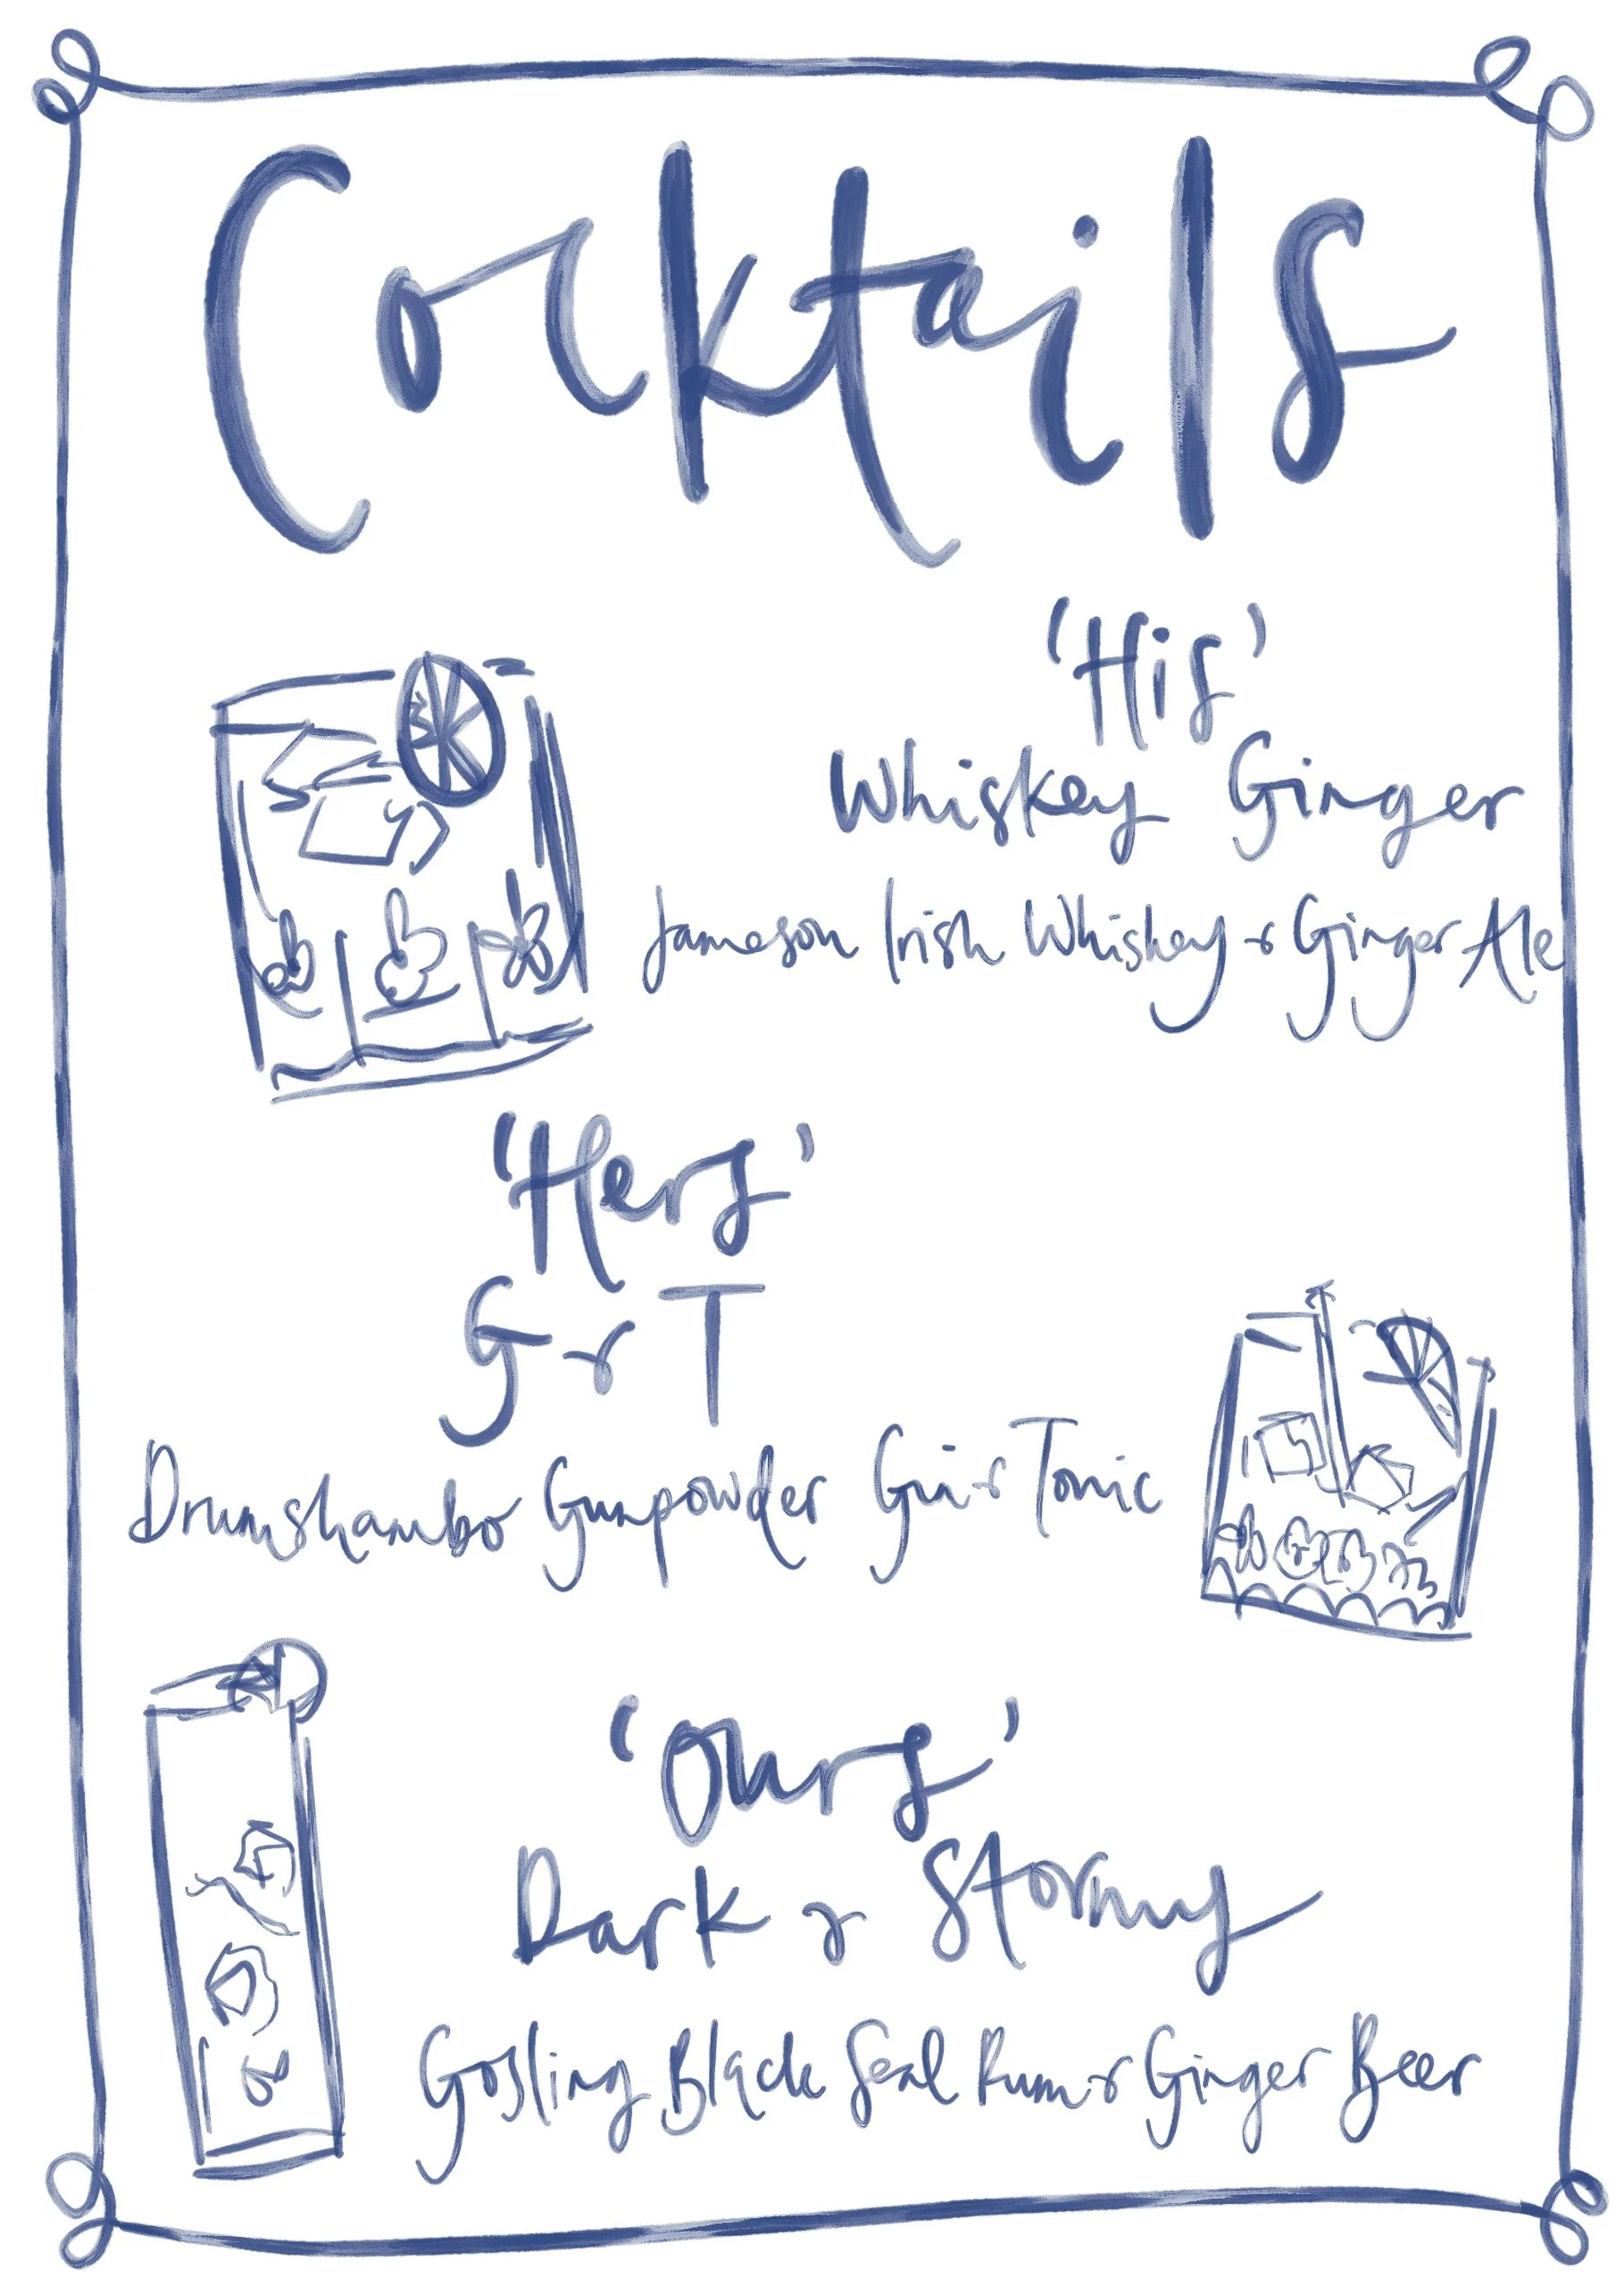 Cocktails
'His'
Whiskey Ginger
Jameson Irish Whiskey & Ginger Ale
'Hers'
G & T
Drumshambo Gunpowder Gin & Tonic
'Ours'
Dark & Stormy
Gosling Black Seal Rum & Ginger Beer